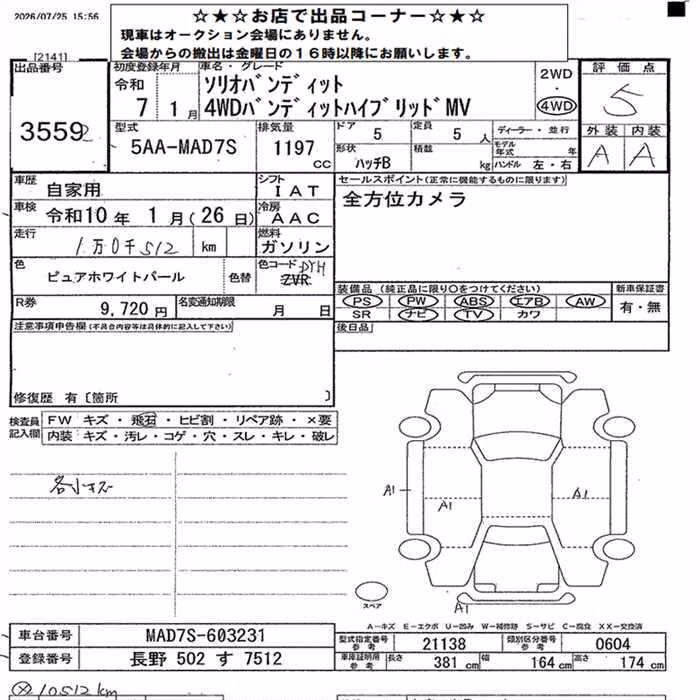 2026/07/25 15:56
☆★☆お店で出品コーナー☆★☆
現車はオークション会場にありません。
会場からの搬出は金曜日の16時以降にお願いします。
[2141]
出品番号 初度登録年月 車名・グレード 2WD・4WD 評価点
令和 7 1月 ソリオバンディット
4WDバンディットハイブリッドMV
5
3559
型式 5AA-MAD7S 排気量 1197 cc
ドア 5 定員 5人 ディーラー・並行 外装 内装
形状 ハッチB 積載 kg モデル年式 年 ハンドル 左・右 A A
車歴 自家用 シフト IAT セールスポイント(正常に機能するものに限ります)
車検 令和10年 1月(26日) 冷房 AAC 全方位カメラ
走行 1万0千512 km 燃料 ガソリン
色 ピュアホワイトパール 色替 色コード ZVR
装備品(純正品に限り○をつけてください) 新車保証書
PS PW ABS エアB AW 有・無
SR ナビ TV カワ
R券 9,720円 名変通知期限 月 日
注意事項申告欄(不具合内容等は具体的に記入して下さい) 後日品
修復歴 有〔箇所 〕
検査員記入欄 FW キズ・飛石・ヒビ割・リペア跡・×要
内装 キズ・汚レ・コゲ・穴・スレ・キレ・破レ
各小キズ
A1
A1
A1
スペア
A1
A-キズ E-エクボ U-凹み W-補修跡 S-サビ C-腐食 XX-交換済
車台番号 MAD7S-603231 型式指定番号参考 21138 類別区分番号参考 0604
登録番号 長野 502 す 7512 車庫証明用参考 長さ 381 cm 幅 164 cm 高さ 174 cm
10512 km